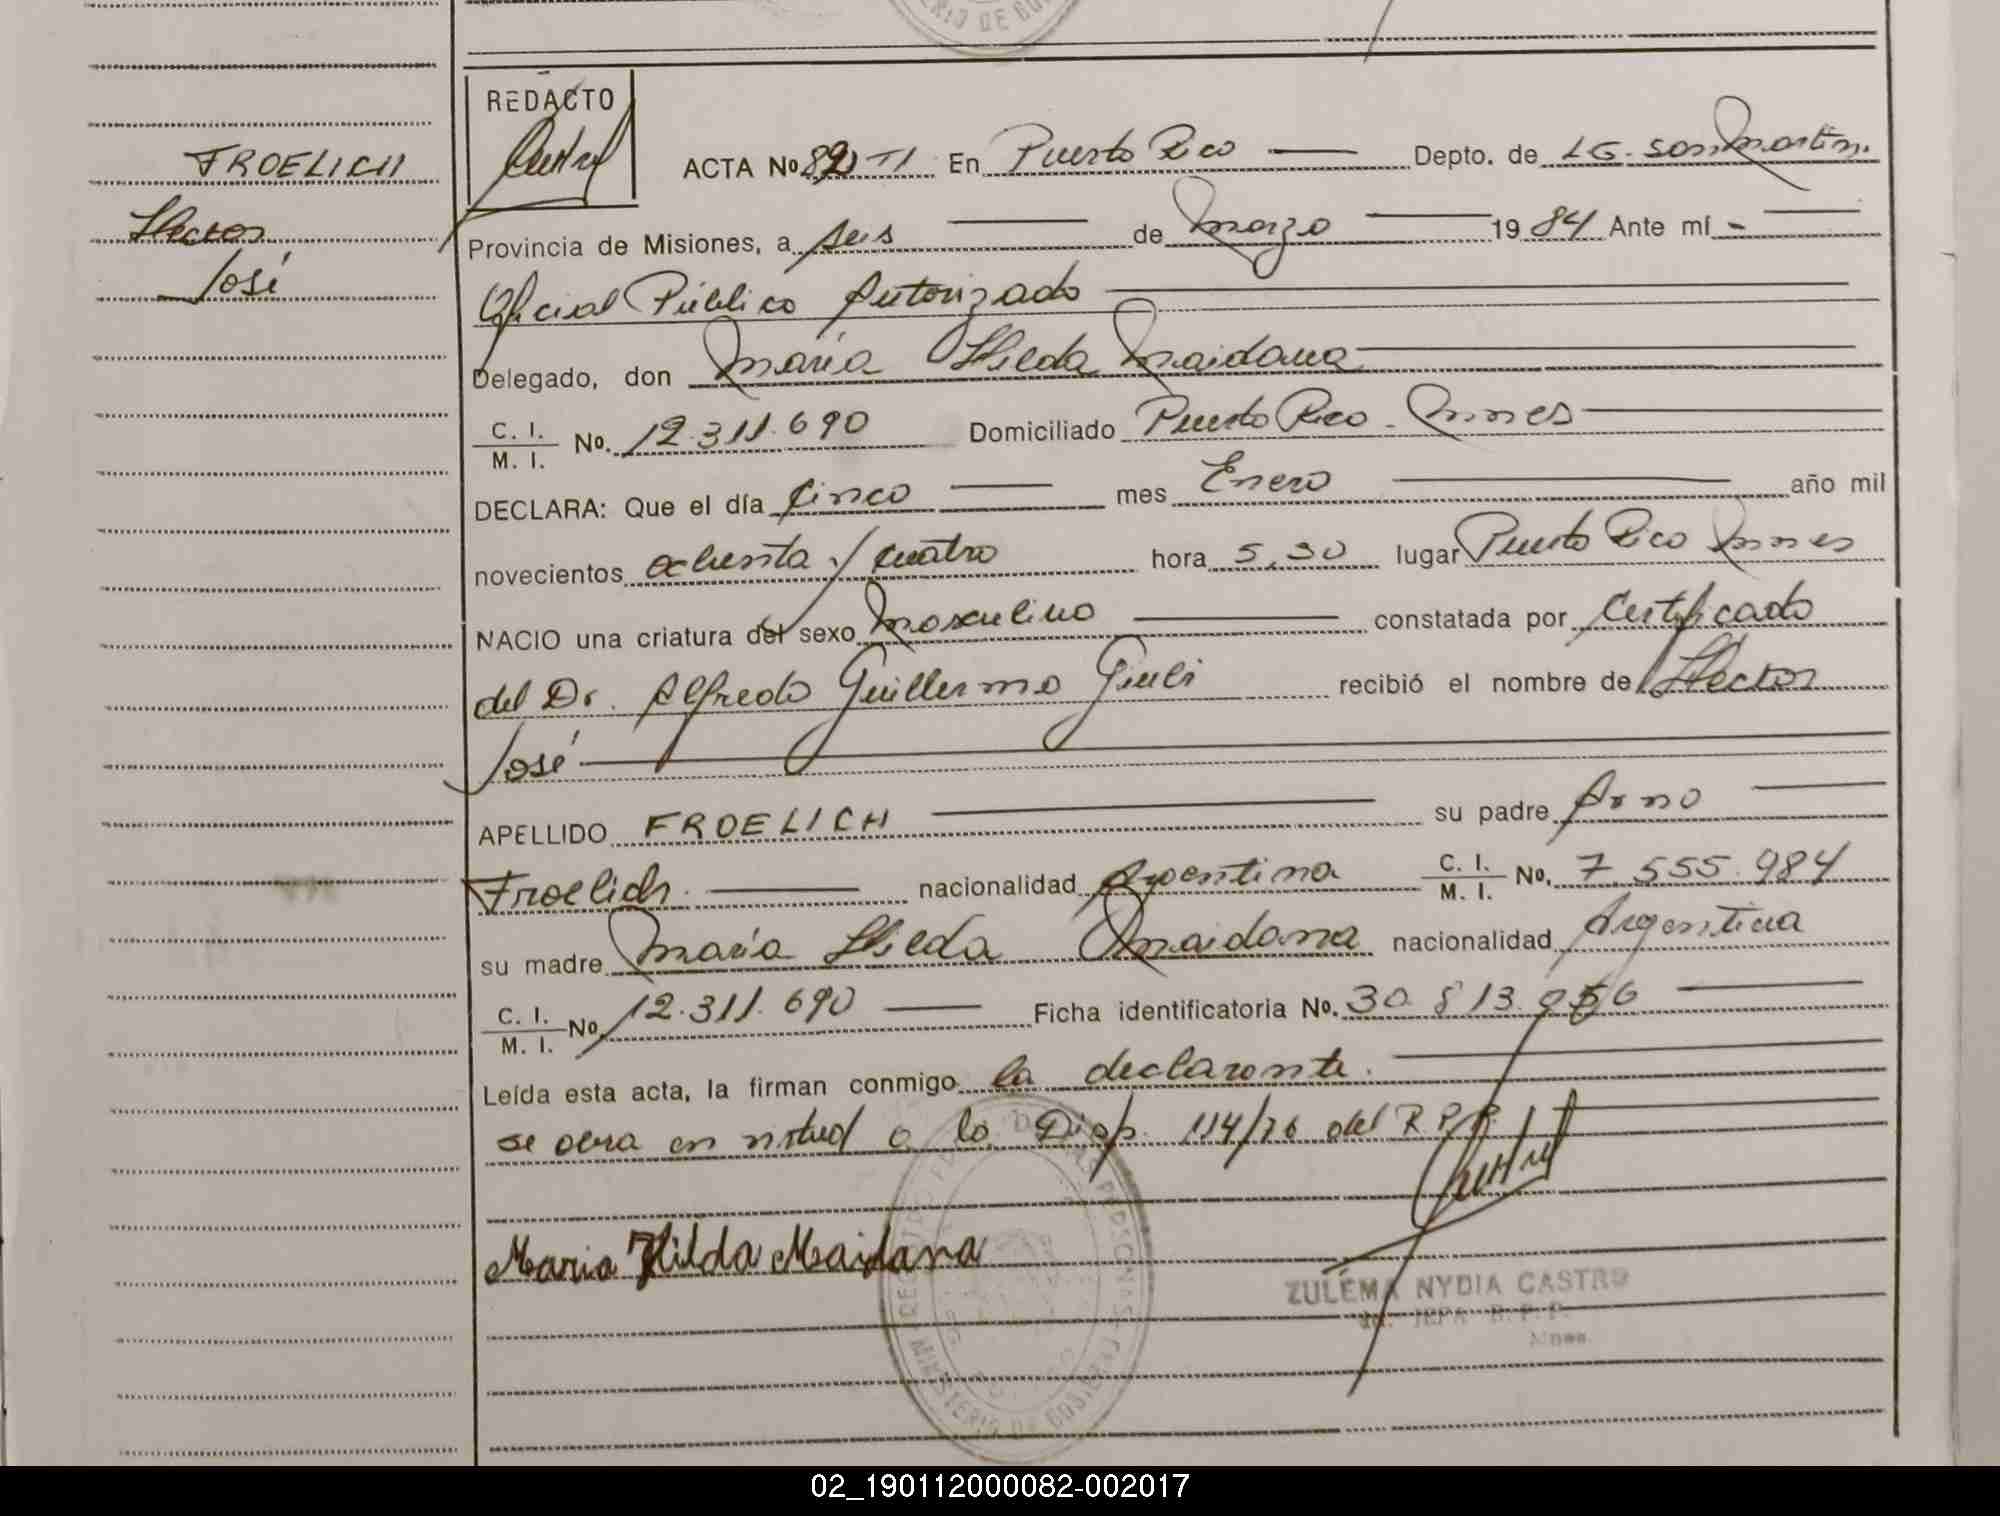 FROELICH
Hector
José
REDACTO
ACTA No 82 TI En Puerto Rico Depto. de LG. San Martin.
Provincia de Misiones, a seis de marzo 1984 Ante mí
Oficial Público Autorizado
Delegado, don María Hilda Maidana
C. I.
M. I. No. 12.311.690 Domiciliado Puerto Rico - Mnes
DECLARA: Que el día cinco mes Enero año mil
novecientos ochenta y cuatro hora 5,30 lugar Puerto Rico Mnes
NACIO una criatura del sexo Masculino constatada por Certificado
del Dr. Alfredo Guillermo Giuli recibió el nombre de Hector
José
APELLIDO FROELICH su padre Arno
Froelich. nacionalidad Argentina C. I. M. I. No. 7.555.984
su madre María Hilda Maidana nacionalidad Argentina
C. I.
M. I. No. 12.311.690 Ficha identificatoria No. 30.813.056
Leída esta acta, la firman conmigo la declarante.
se obra en virtud a la Disp. 114/76 del R.P.P.
Maria Hilda Maidana
ZULEMA NYDIA CASTRO
MINISTERIO DE GOBIERNO
02_190112000082-002017